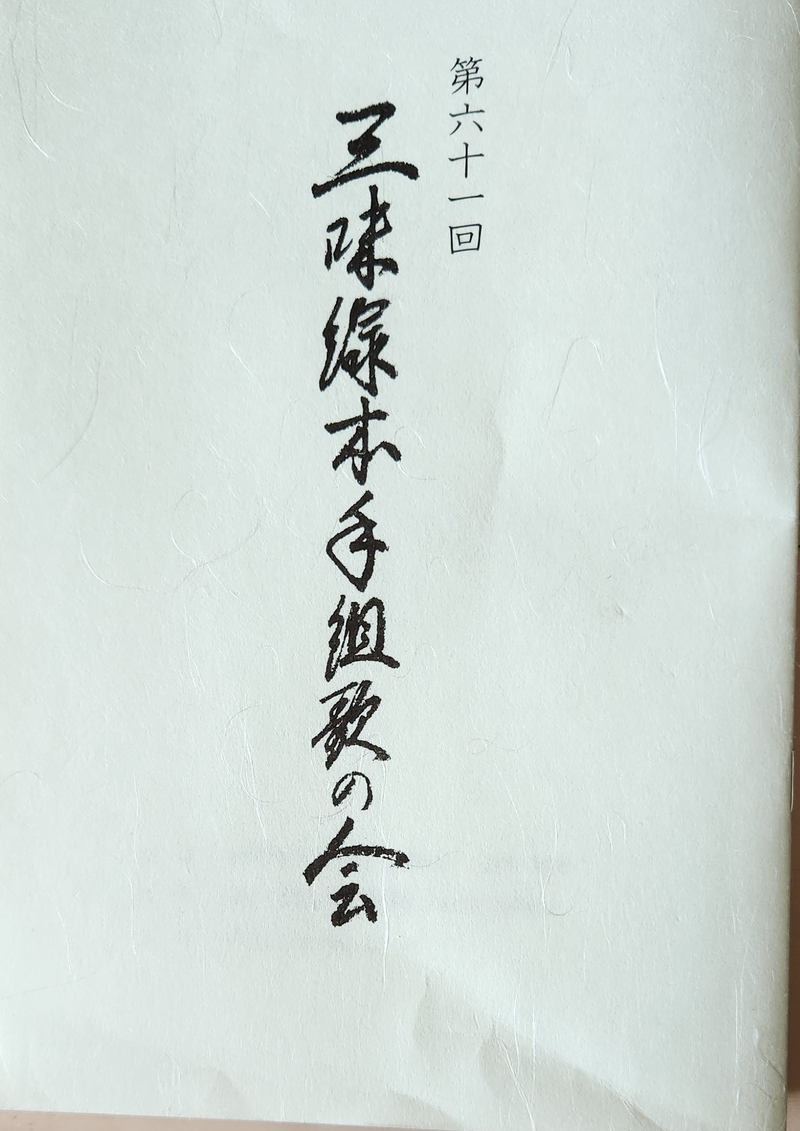 第六十一回
三味線本手組歌の会